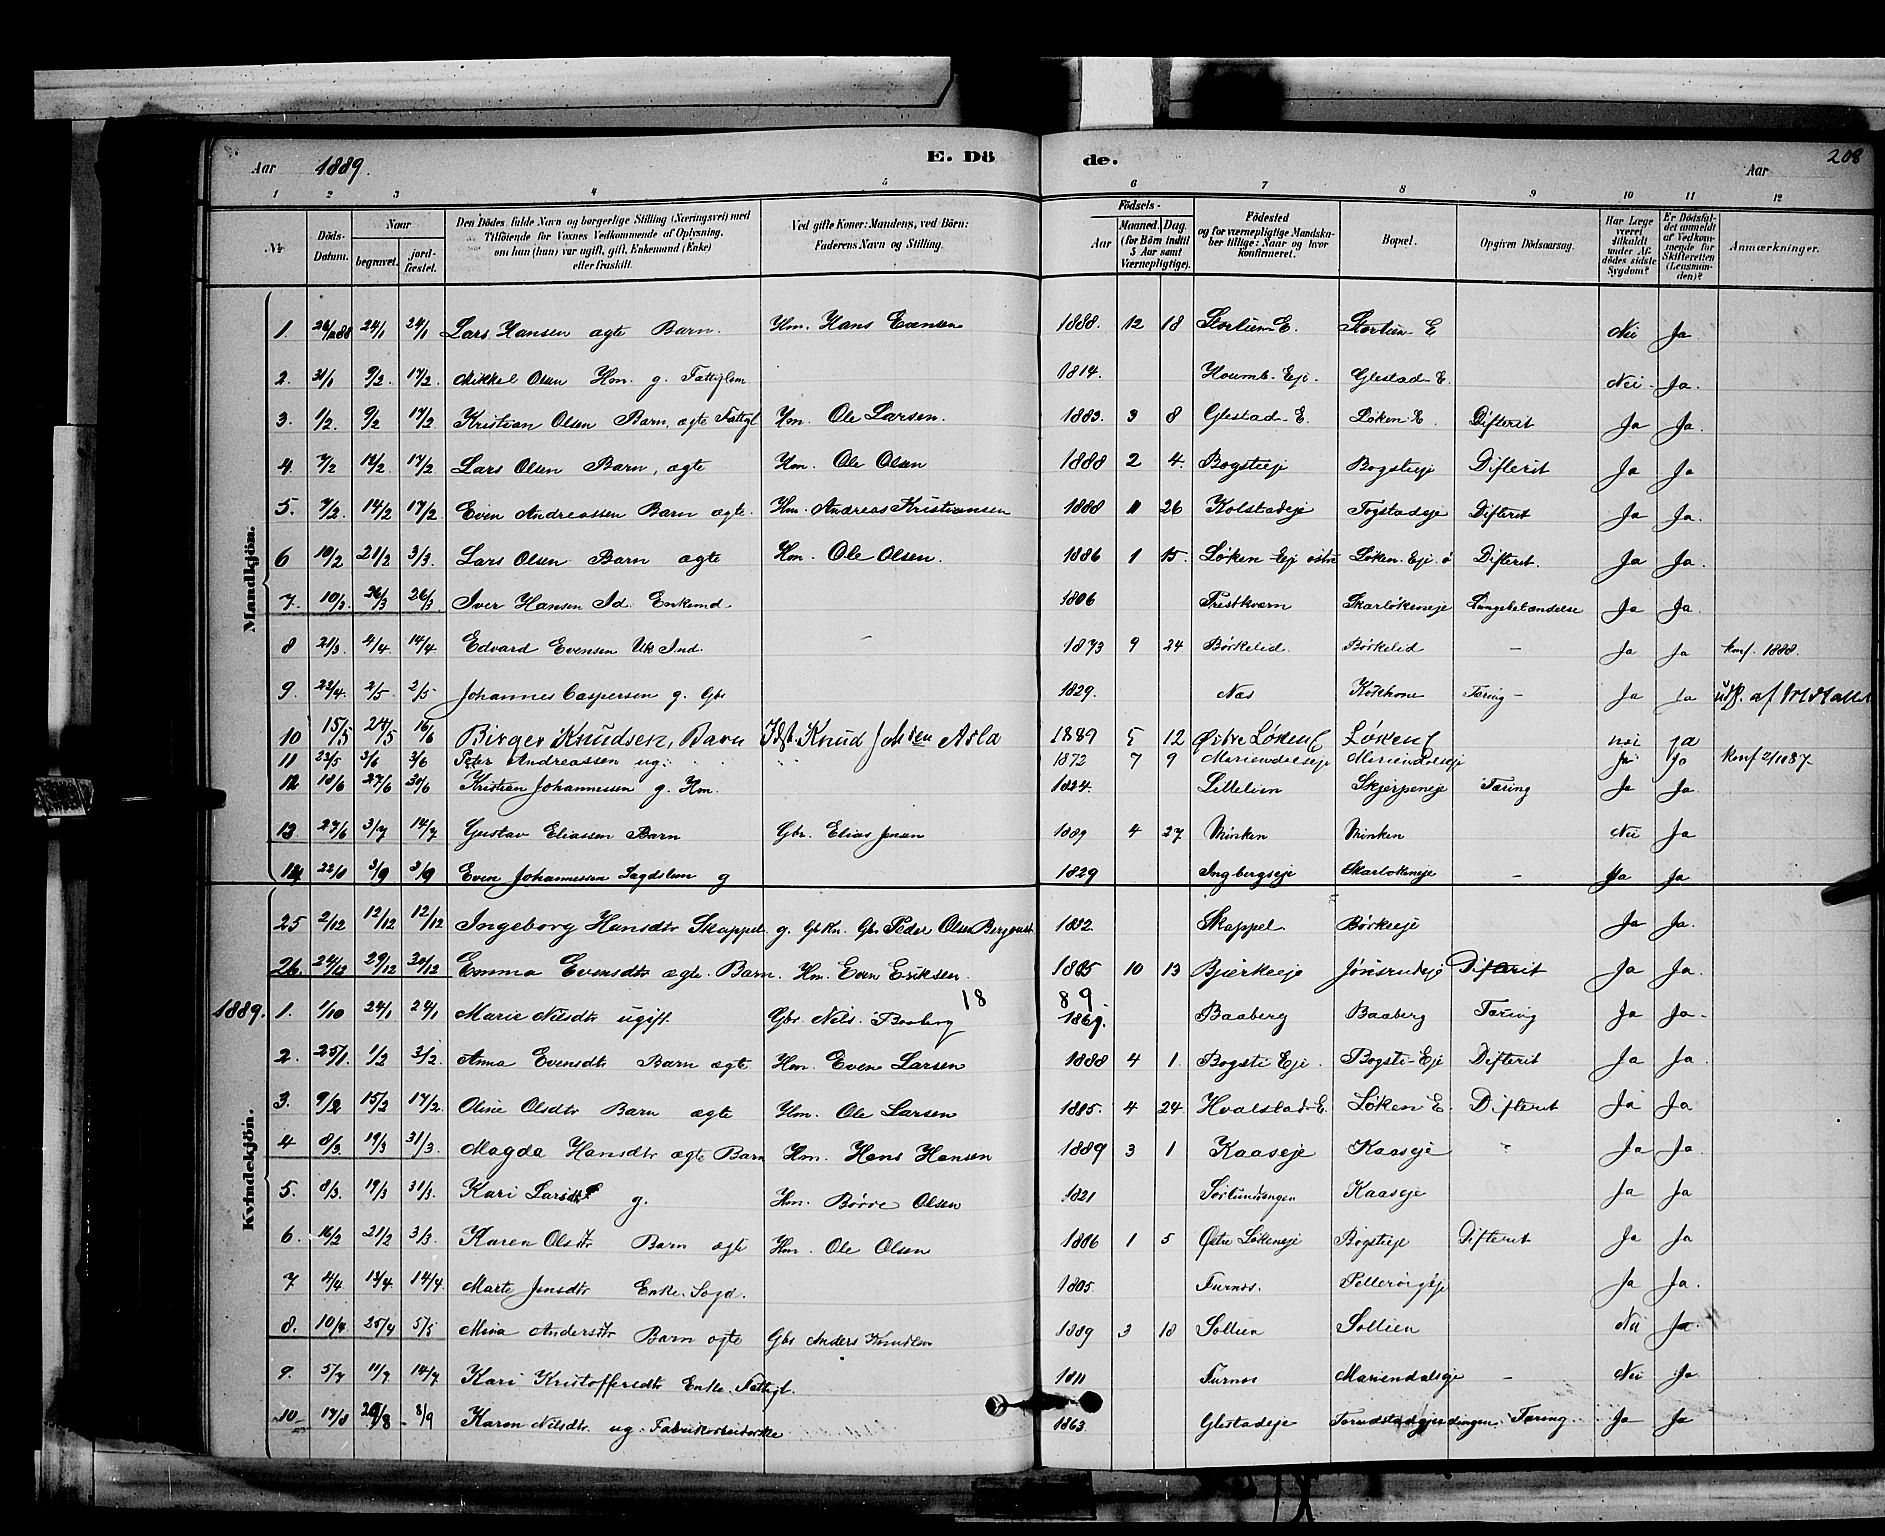 Aar 1889. E. Dö de. Aar 208
1 2 3 4 5 6 7 8 9 10 11 12
Nr Döds-Datum. Naar begravet. jordfæstet. Den Dödes fulde Navn og borgerlige Stilling (Næringsvei) med Tilföiende for Voxnes Vedkommende af Oplysning, om han (hun) var ugift, gift, Enkemand (Enke) eller fraskilt. Ved gifte Koner: Mandens, ved Börn: Faderens Navn og Stilling. Födsels- Aar Maaned. Dag. (for Börn indtil 5 Aar samt Værnepligtige). Födested og for værnepligtige Mandskaber tillige: Naar og hvor konfirmeret. Bopæl. Opgiven Dödsaarsag. Har Læge været tilkaldt under Afdödes sidste Sygdom? Er Dödsfaldet anmeldt af Vedkommende for Skifteretten (Lensmanden)? Anmærkninger.
Mandkjön.
1. 26/12 88 24/1 24/1 Lars Hansen ægte Barn. Hm. Hans Evensen 1888. 12 18 Stortien-E. Stortien-E Nei Ja
2. 31/1 9/2. 17/2. Mikkel Olsen Hm. g. Fattiglem 1814. Glestad-E. Nei Ja.
3. 1/2. 9/2 17/2. Kristian Olsen Barn, ægte Fattigl Hm. Ole Larsen. 1883. 3 8 Glestad-E. Løken-E. Difterit Ja Ja.
4. 7/2 14/2 17/2. Lars Olsen Barn, ægte Hm. Ole Olsen 1888 2 4. Bogstieje Bogstieje Difterit Ja Ja
5. 7/2. 14/2 17/2. Even Andreassen Barn ægte. Hm. Andreas Kristiansen 1888 11 26 Kolstadeje Togstadeje Difterit Ja Ja.
6 10/2 21/2 3/3. Lars Olsen Barn ægte Hm. Ole Olsen. 1886 1 15. Løken-Eje østre Løken. Eje. ø Difterit. Ja Ja
7. 10/3 26/3 26/3 Iver Hansen Id. Enkemd 1806 Prestkværn Skarløkeneje Lungebetændelse Ja Ja.
8 21/3. 4/4. 14/4 Edvard Evensen Ind. 1873 9 24 Børkelid. Børkelid - Ja Ja Kmf. 1888.
9. 22/4. 2/5 2/5 Johannes Caspersen g. Gbr 1829. Næs Tæring- Ja Ja
10 15/5 24/5 16/6 Birger Knudsen, Barn Knud 1889 5 12 Østre Løken E Løken E nei ja
11 22/5 3/6 3/6 Peter Andreassen ug. 1872 7 9 Mariendalseje Mariendalseje Ja Ja Kmf 2/10 87
12 18/6 27/6 30/6 Kristian Johannessen g. Hm. 1824. Lillelien Skjerpeneje Tæring Ja Ja.
13. 27/6 3/7 14/7 Gustav Eliassen Barn Gbr. Elias Jensen 1889 4 27 Vinken Vinken Nei Ja
14 22/8 3/9 3/9 Even Johannessen Lægdslem g 1829 Ingbergseje Skarløkeneje - Ja Ja
Kvindekjön.
25 2/12 12/12 12/12 Ingeborg Hansdtr Skappel g. Gbr. Peder Olsen 1832. Skappel. Børkeeje Ja Ja
26. 24/12 29/12 30/12 Emma Evensdtr ægte Barn. Hm. Even Eriksen. 1885 10 13 Bjerkeeje Jønsrudeje Difterit Ja Ja.
18 89.
1889. 1. 1/10 24/1 24/1 Marie Nilsdtr ugift Gbr Nils Baaberg 1869. Baaberg Baaberg Tæring Ja Ja.
2. 25/1. 1/2 3/2. Anna Evensdtr Barn ægte Hm. Even Larsen 1888 4 1. Bogsti Eje. Bogsti-Eje Difterit Ja Ja.
3. 9/2 15/2 17/2. Oline Olsdtr Barn ægte Hm. Ole Larsen 1885. 4 24. Hvalstad-E. Løken E. Difterit Ja Ja
4 8/3. 19/3 31/3. Magda Hansdtr ægte Barn Hm. Hans Hansen 1889 3 1 Kaaseje Kaaseje Ja Ja
5. 8/3. 19/3 31/3. Kari Larsdtr g. Hm. Børre Olsen 1821 Kaaseje Ja Ja
6. 16/2 21/2 3/3. Karen Olsdtr Barn ægte Hm. Ole Olsen 1886 1 5 Østre Løkeneje Bogstieje Difterit Ja Ja
7 4/4 13/4 14/4 Marte Jensdtr Enke. 1805 Furnes. Ja Ja.
8. 10/4 25/4 5/5 Mina Andersdtr Barn ægte Gbr Anders Knudsen 1889 3 18 Sollien Sollien Nei Ja.
9. 5/7 11/7 14/7 Kari Kristoffersdtr Enke. Fattigl. 1811 Furnes Mariendalseje - Nei Ja
10 17/8 26/8 8/9 Karen Nilsdtr ug. Fabrikarbeiderske 1863 Glestadeje Tæring Ja Ja